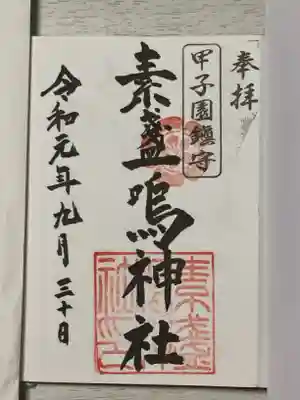 奉拝
甲子園鎮守
素盞嗚神社
令和元年九月三十日